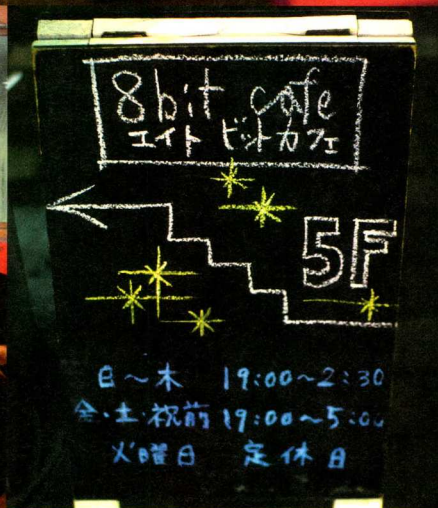 8bit cafe
エイト ビット カフェ
5F
日～木 19:00～2:30
金・土・祝前 19:00～5:00
火曜日 定休日